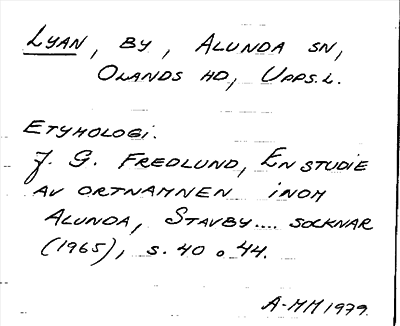 LYAN, BY, ALUNDA SN,
OLANDS HD, UPPS.L.
ETYMOLOGI.
J. G. FREDLUND, EN STUDIE
AV ORTNAMNEN INOM
ALUNDA, STAVBY.... SOCKNAR
(1965), S. 40 o 44.
A-MM 1979.